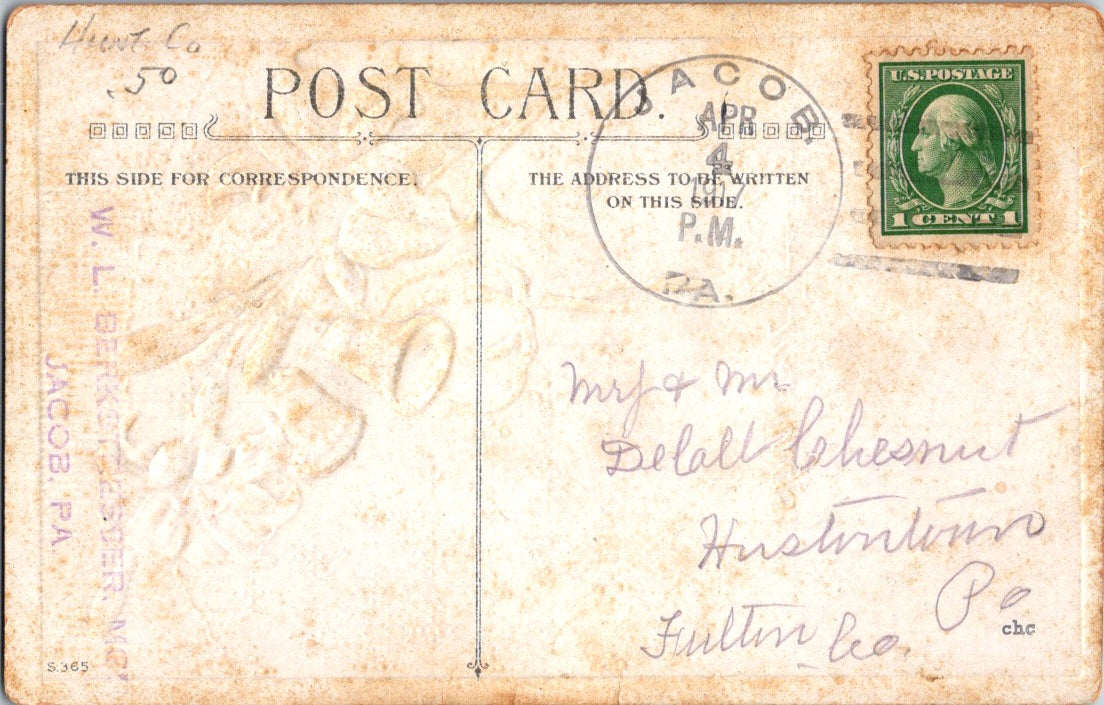 Hunt. Co
.50
POST CARD.
JACOB.
APR
4
1917
P.M.
PA.
U.S. POSTAGE
1 CENT 1
THIS SIDE FOR CORRESPONDENCE.
THE ADDRESS TO BE WRITTEN
ON THIS SIDE.
W. L.
JACOB, PA.
Mrs & Mr
Chesnut
Hustontown
Pa
Fulton Co.
chc
S.365